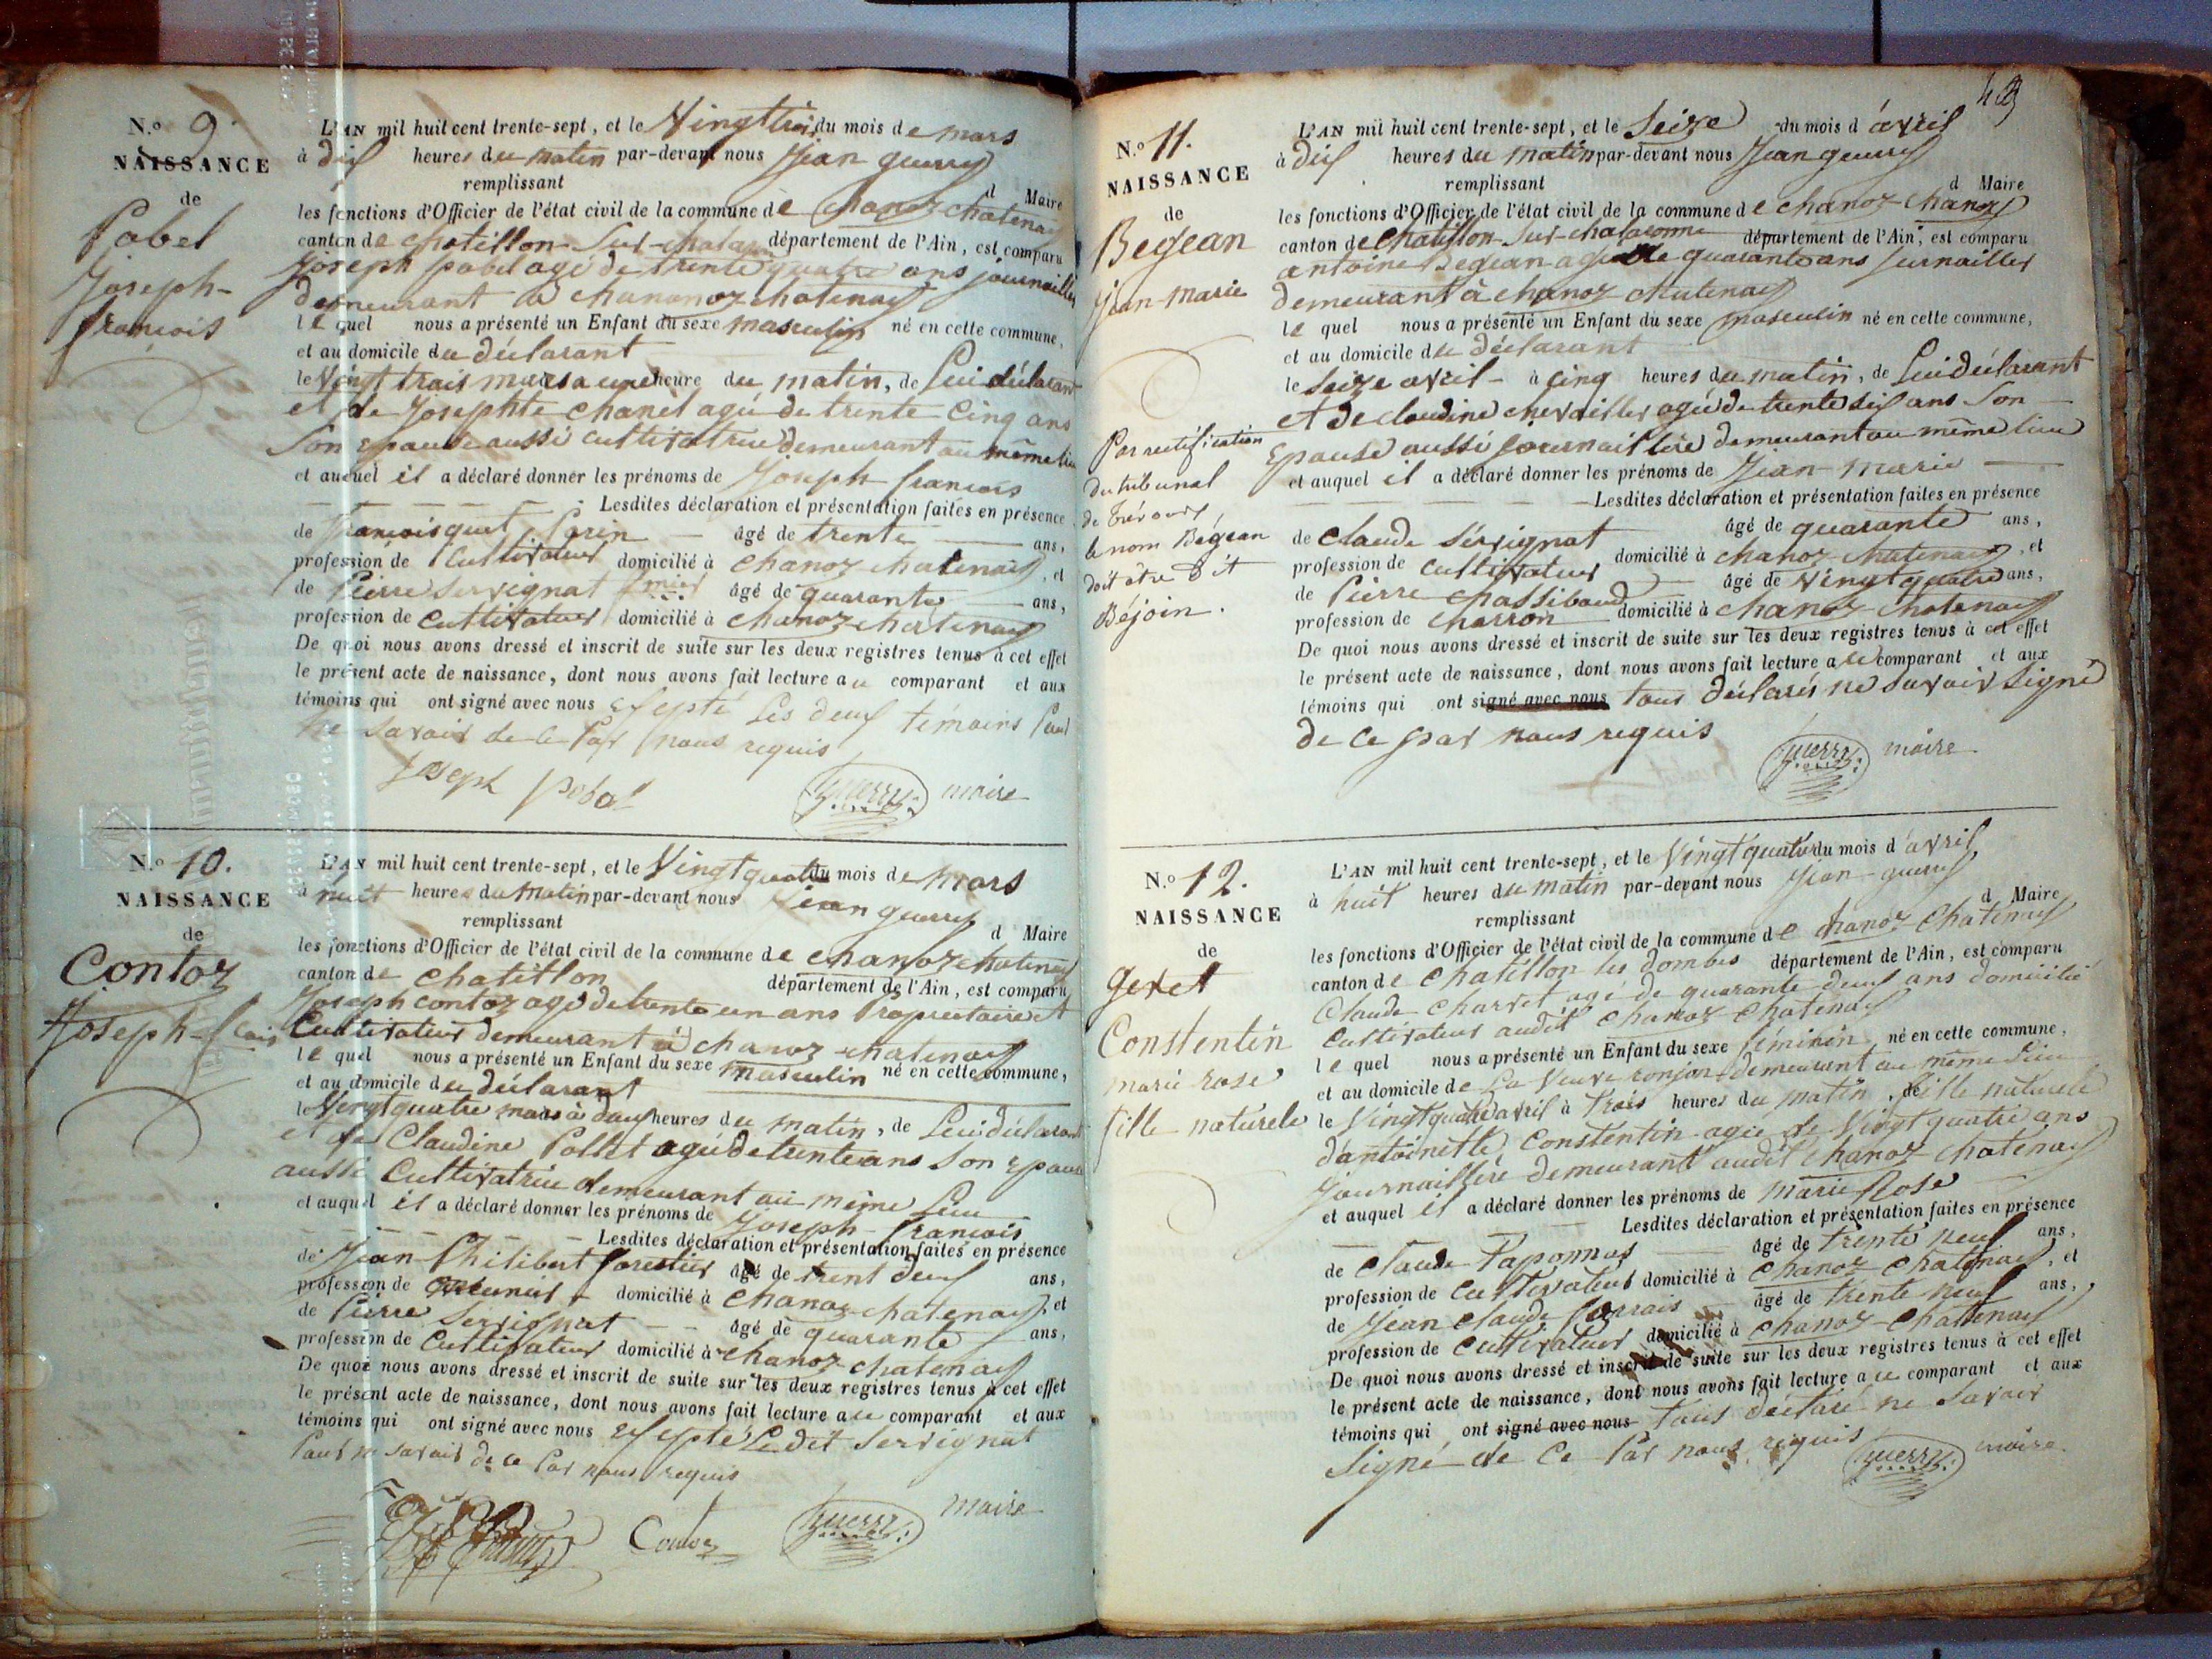 N.o 9.
NAISSANCE
de
Pobel
Joseph-
francois
L'AN mil huit cent trente-sept, et le Vingt trois du mois de mars
à dix heures du matin par-devant nous Jean guerry
remplissant d Maire
les fonctions d'Officier de l'état civil de la commune de Chanoz chatenay
canton de chatillon-sur-chalaronne département de l'Ain, est comparu
Joseph pobel agé de trente quatre ans journaillier
demeurant à chanonoz chatenay
le quel nous a présenté un Enfant du sexe masculin né en cette commune,
et au domicile du déclarant
le Vingt trois mars a une heure du matin, de Lui déclarant
et de Josephte chanel agé de trente Cinq ans
Son Epouse aussi cultivatrice demeurant au même lieu
et auquel il a déclaré donner les prénoms de Joseph francois
Lesdites déclaration et présentation faites en présence
de francois âgé de trente ans,
profession de Cultivateur domicilié à Chanoz chatenay, et
de Pierre servignat âgé de quarante ans,
profession de Cultivateur domicilié à Chanoz chatenay
De quoi nous avons dressé et inscrit de suite sur les deux registres tenus à cet effet
le présent acte de naissance, dont nous avons fait lecture au comparant et aux
témoins qui ont signé avec nous Exepté Les deux témoins pour
ne Savoir de ce Par nous requis
Joseph pobel guerry maire
N.o 10.
NAISSANCE
de
Contoz
Joseph-fcois
L'AN mil huit cent trente-sept, et le Vingt quatre du mois de Mars
à huit heures du Matin par-devant nous Jean guerry
remplissant d Maire
les fonctions d'Officier de l'état civil de la commune de chanoz chatenay
canton de Chatillon département de l'Ain, est comparu
Joseph contoz agé de trente un ans Proprietaire et
Cultivateur demeurant à chanoz chatenay
le quel nous a présenté un Enfant du sexe masculin né en cette commune,
et au domicile du déclarant
le Vingt quatre mars à deux heures du matin, de Lui déclarant
et de Claudine Pollet agé de trente ans Son Epouse
aussi Cultivatrice demeurant au même Lieu
et auquel il a déclaré donner les prénoms de Joseph francois
Lesdites déclaration et présentation faites en présence
de Jean Philibert forestier âgé de trent deux ans,
profession de domicilié à Chanoz chatenay, et
de Pierre Servignat âgé de quarante ans,
profession de Cultivateur domicilié à chanoz chatenay
De quoi nous avons dressé et inscrit de suite sur les deux registres tenus à cet effet
le présent acte de naissance, dont nous avons fait lecture au comparant et aux
témoins qui ont signé avec nous Exepté Ledit Servignat
Pour ne savoir de ce Par nous requis
Contoz guerry maire
N.o 11.
NAISSANCE
de
Begean
Jean-marie
Par rectification
du tribunal
de Trévoux,
le nom Bégean
doit être dit
Béjoin.
L'AN mil huit cent trente-sept, et le Seize du mois d'avril
à dix heures du matin par-devant nous Jean guerry
remplissant d Maire
les fonctions d'Officier de l'état civil de la commune de chanoz chanoz
canton de Chatillon-sur-chalaronne département de l'Ain, est comparu
antoine Begean agé de quarante ans Journaillier
demeurant à chanoz chatenay
le quel nous a présenté un Enfant du sexe masculin né en cette commune,
et au domicile du déclarant
le Seize avril - à Cinq heures du matin, de Lui déclarant
et de claudine chevaillier agé de trente six ans Son
Epouse aussi journaillire demeurant au même lieu
et auquel il a déclaré donner les prénoms de Jean marie
Lesdites déclaration et présentation faites en présence
de Claude Sérvignat âgé de quarante ans,
profession de Cultivateur domicilié à chanoz chatenay, et
de Pierre chassibaud âgé de Vingt quatre ans,
profession de Charron domicilié à chanoz chatenay
De quoi nous avons dressé et inscrit de suite sur les deux registres tenus à cet effet
le présent acte de naissance, dont nous avons fait lecture au comparant et aux
témoins qui ont signé avec nous tous déclarés ne savoir Signé
de ce par nous requis
guerry maire
N.o 12.
NAISSANCE
de
Constentin
marie rose
fille naturele
L'AN mil huit cent trente-sept, et le Vingt quatre du mois d'avril
à huit heures du matin par-devant nous Jean guerry
remplissant d Maire
les fonctions d'Officier de l'état civil de la commune de chanoz Chatenay
canton de Chatillon les dombes département de l'Ain, est comparu
Claude Charvet agé de quarante deux ans domicilié
Cultivateur audit Chanoz Chatenay
le quel nous a présenté un Enfant du sexe féminin né en cette commune,
et au domicile de La Veuve ronjon demeurant au même Lieu
le Vingt quatre avril à Trois heures du matin, de fille naturele
d'antoinette Constentin agée de Vingt quatre ans
Journaillère demeurant audit Chanoz chatenay
et auquel il a déclaré donner les prénoms de marie Rose
Lesdites déclaration et présentation faites en présence
de Claude Taponnas âgé de trente neuf ans,
profession de Cultivateur domicilié à Chanoz Chatenay, et
de Jean claude âgé de trente neuf ans,
profession de Cultivateur domicilié à Chanoz-Chattenay
De quoi nous avons dressé et inscrit de suite sur les deux registres tenus à cet effet
le présent acte de naissance, dont nous avons fait lecture au comparant et aux
témoins qui ont signé avec nous Tous déclaré ne Savoir
Signé de Ce Par nous requis
guerry maire